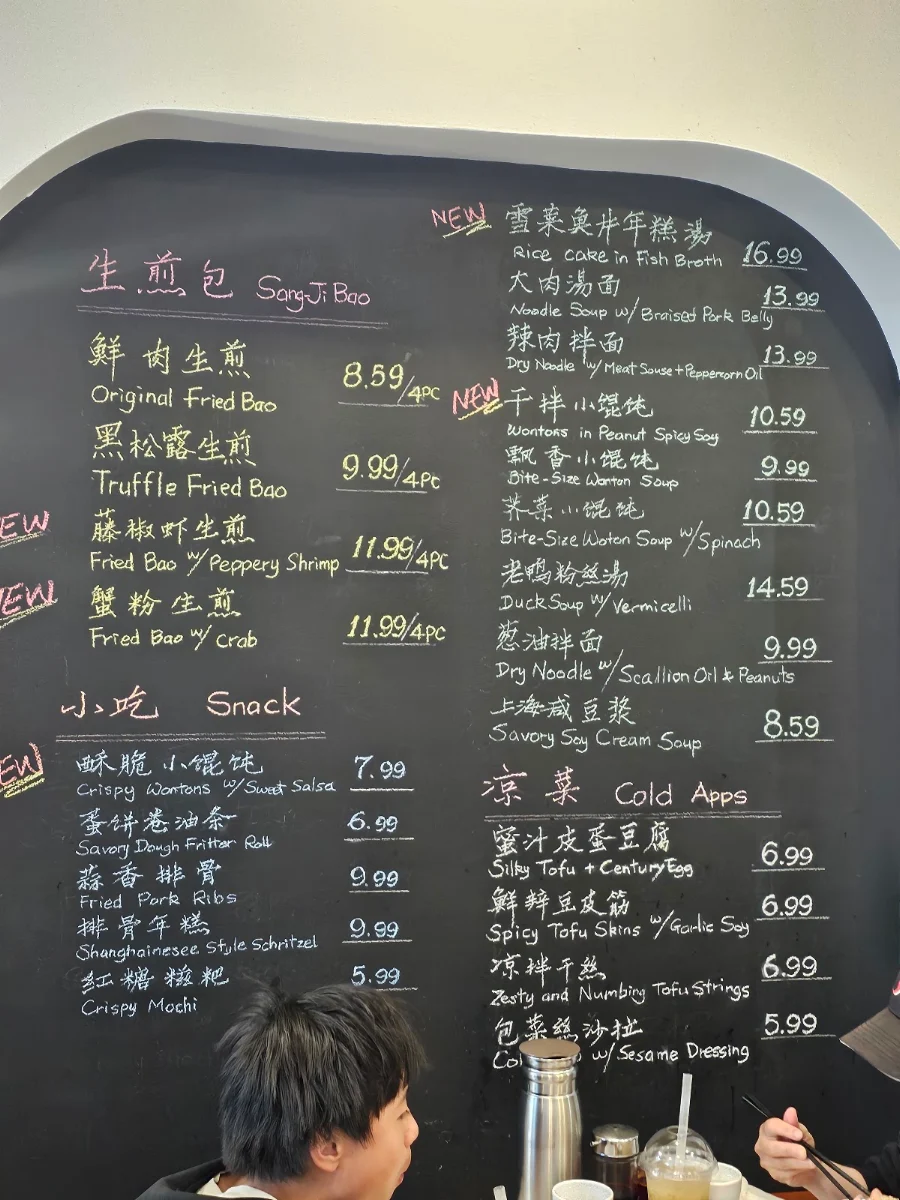 生煎包 Sang-Ji Bao
鮮肉生煎
Original Fried Bao 8.59/4PC
黑松露生煎
Truffle Fried Bao 9.99/4PC
EW
藤椒虾生煎
Fried Bao w/Peppery Shrimp 11.99/4PC
EW
蟹粉生煎
Fried Bao w/ Crab 11.99/4PC
小吃 Snack
EW
酥脆小馄饨 7.99
Crispy Wontons w/Sweet Salsa
蛋饼卷油条 6.99
Savory Dough Fritter Roll
蒜香排骨 9.99
Fried Pork Ribs
排骨年糕 9.99
Shanghainesee Style Schritzel
红糖糍粑 5.99
Crispy Mochi
NEW 雪菜魚片年糕湯
Rice cake in Fish Broth 16.99
大肉湯面 13.99
Noodle Soup w/ Braised Pork Belly
辣肉拌面 13.99
Dry Noodle w/ Meat Souse+Peppercorn Oil
NEW 干拌小馄饨 10.59
Wontons in Peanut Spicy Soy
飘香小馄饨 9.99
Bite-Size Wonton Soup
荠菜小馄饨 10.59
Bite-Size Woton Soup w/Spinach
老鴨粉絲湯 14.59
Duck Soup w/ Vermicelli
葱油拌面 9.99
Dry Noodle w/Scallion Oil & Peanuts
上海咸豆浆 8.59
Savory Soy Cream Soup
凉菜 Cold Apps
蜜汁皮蛋豆腐 6.99
Silky Tofu + Century Egg
鮮辣豆皮筋 6.99
Spicy Tofu Skins w/Garlic Soy
凉拌干絲 6.99
Zesty and Numbing Tofu Strings
包菜絲沙拉 5.99
w/Sesame Dressing